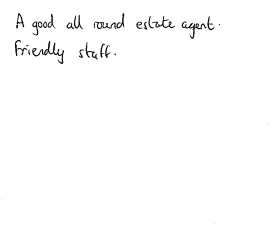 A good all round estate agent.
Friendly staff.